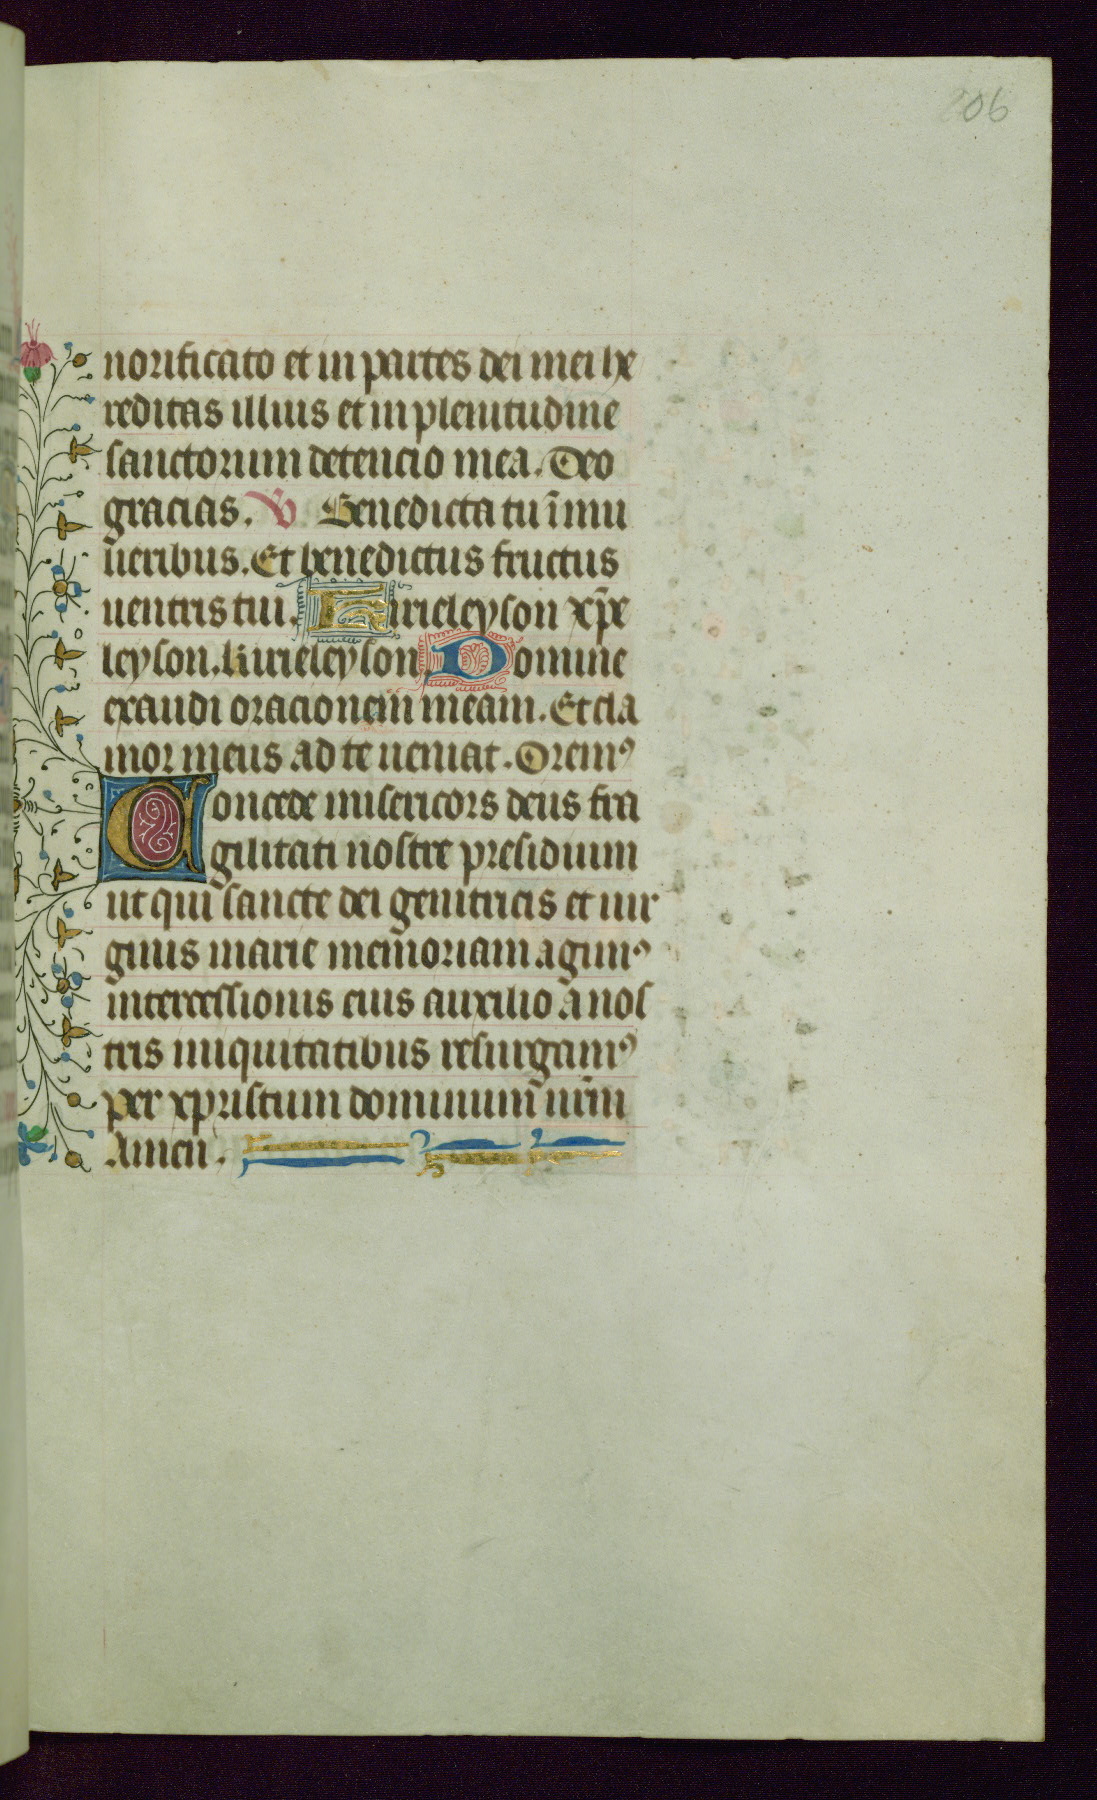 206
norificato et in partes dei mei he
reditas illius et in plenitudine
sanctorum detencio mea. Deo
gracias. V Benedicta tu ī mu
lieribus. Et benedictus fructus
uentris tui. Kirieleyson xp̄e
leyson. Kirieleyson. Domine
exaudi oracionem̄ meam. Et cla
mor meus ad te ueniat. Oremꝰ
Concede misericors deus fra
gilitati nostre presidium
ut qui sancte dei genitricis et uir
ginis marie memoriam agimꝰ
intercessionis eius auxilio a nos
tris iniquitatibus resurgamꝰ
per xpristum dominum̄ nr̄m
Amen.